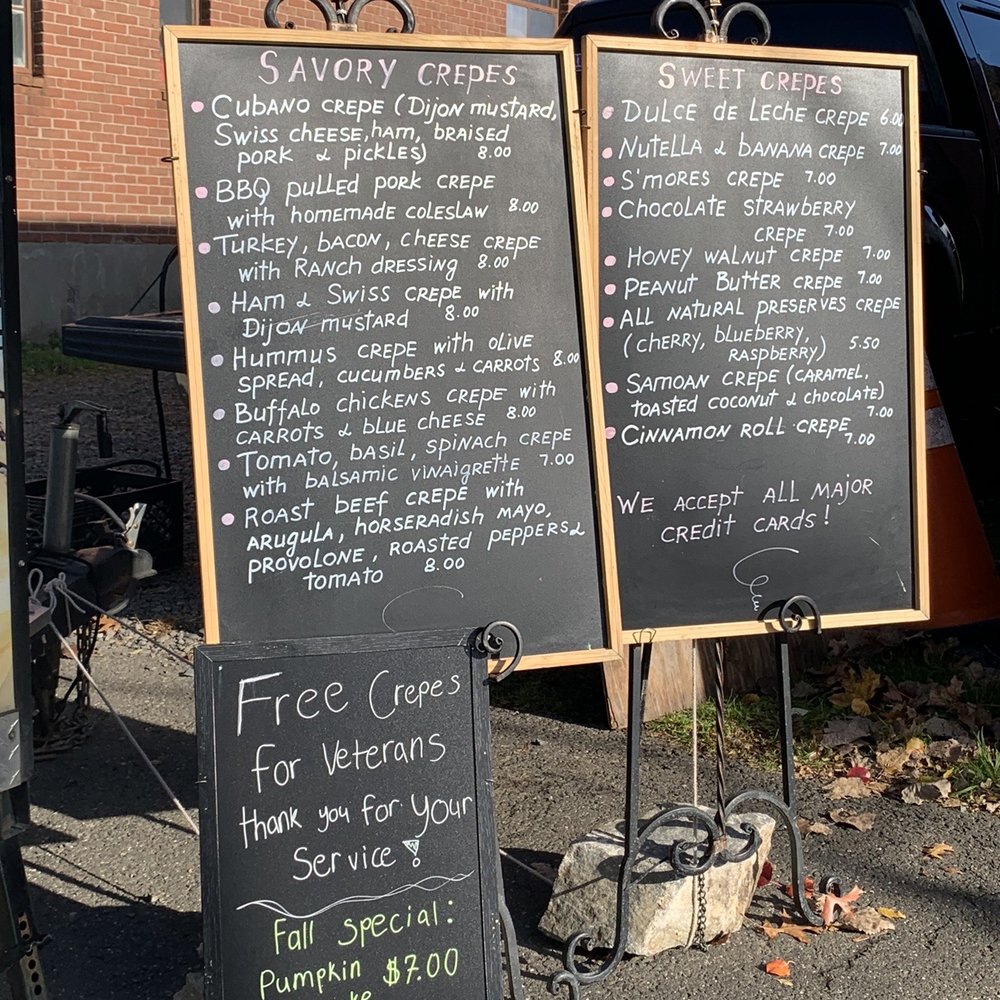 SAVORY CREPES
CUBANO CREPE (DIJON MUSTARD,
SWISS CHEESE, HAM, BRAISED
PORK & PICKLES) 8.00
BBQ PULLED PORK CREPE
WITH HOMEMADE COLESLAW 8.00
TURKEY, BACON, CHEESE CREPE
WITH RANCH DRESSING 8.00
HAM & SWISS CREPE WITH
DIJON MUSTARD 8.00
HUMMUS CREPE WITH OLIVE
SPREAD, CUCUMBERS & CARROTS 8.00
BUFFALO CHICKENS CREPE WITH
CARROTS & BLUE CHEESE 8.00
TOMATO, BASIL, SPINACH CREPE
WITH BALSAMIC VINAIGRETTE 7.00
ROAST BEEF CREPE WITH
ARUGULA, HORSERADISH MAYO,
PROVOLONE, ROASTED PEPPERS &
TOMATO 8.00
SWEET CREPES
DULCE DE LECHE CREPE 6.00
NUTELLA & BANANA CREPE 7.00
S'MORES CREPE 7.00
CHOCOLATE STRAWBERRY
CREPE 7.00
HONEY WALNUT CREPE 7.00
PEANUT BUTTER CREPE 7.00
ALL NATURAL PRESERVES CREPE
(CHERRY, BLUEBERRY,
RASPBERRY) 5.50
SAMOAN CREPE (CARAMEL,
TOASTED COCONUT & CHOCOLATE)
7.00
CINNAMON ROLL CREPE
7.00
WE ACCEPT ALL MAJOR
CREDIT CARDS!
Free Crepes
for Veterans
thank you for Your
Service!
Fall Special:
Pumpkin $7.00